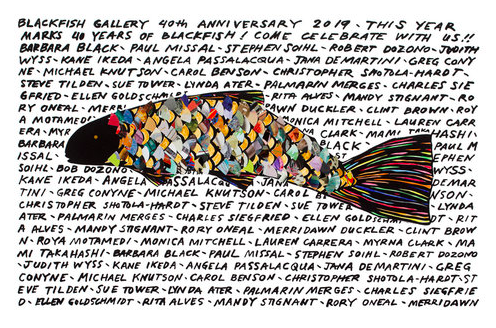 BLACKFISH GALLERY 40TH ANNIVERSARY 2019 - THIS YEAR
MARKS 40 YEARS OF BLACKFISH! COME CELEBRATE WITH US!!
BARBARA BLACK - PAUL MISSAL - STEPHEN SOIHL - ROBERT DOZONO - JUDITH
WYSS - KANE IKEDA - ANGELA PASSALACQUA - JANA DEMARTINI - GREG CONY
NE - MICHAEL KNUTSON - CAROL BENSON - CHRISTOPHER SHOTOLA-HARDT -
STEVE TILDEN - SUE TOWER - LYNDA ATER - PALMARIN MERGES - CHARLES SIE
GFRIED - ELLEN GOLDSCHMIDT - RITA ALVES - MANDY STIGNANT - RO
RY ONEAL - MERRI PAWN DUCKLER - CLINT BROWN - ROY
A MOTAMEDI MONICA MITCHELL - LAUREN CARR
ERA - MYR CLARK - MAMI TAKAHASHI
BARBARA BLACK - PAUL M
ISSAL - EPHEN
SOIHL - BOB DOZONO WYSS -
KANE IKEDA - ANGELA PASSALACQU JANA DEMAR
TINI - GREG CONYNE - MICHAEL KNUTSON - CAROL B NSON -
CHRISTOPHER SHOTOLA-HARDT - STEVE TILDEN - SUE TOWER LYNDA
ATER - PALMARIN MERGES - CHARLES SIEGFRIED - ELLEN GOLDSCHM DT - RIT
A ALVES - MANDY STIGNANT - RORY ONEAL - MERRIDAWN DUCKLER - CLINT BROW
N - ROYA MOTAMEDI - MONICA MITCHELL - LAUREN CARRERA - MYRNA CLARK - MA
MI TAKAHASHI - BARBARA BLACK - PAUL MISSAL - STEPHEN SOIHL - ROBERT DOZONO
- JUDITH WYSS - KANE IKEDA - ANGELA PASSALACQUA - JANA DEMARTINI - GREG
CONYNE - MICHAEL KNUTSON - CAROL BENSON - CHRISTOPHER SHOTOLA-HARDT - ST
EVE TILDEN - SUE TOWER - LYNDA ATER - PALMARIN MERGES - CHARLES SIEGFRIE
D - ELLEN GOLDSCHMIDT - RITA ALVES - MANDY STIGNANT - RORY ONEAL - MERRIDAWN